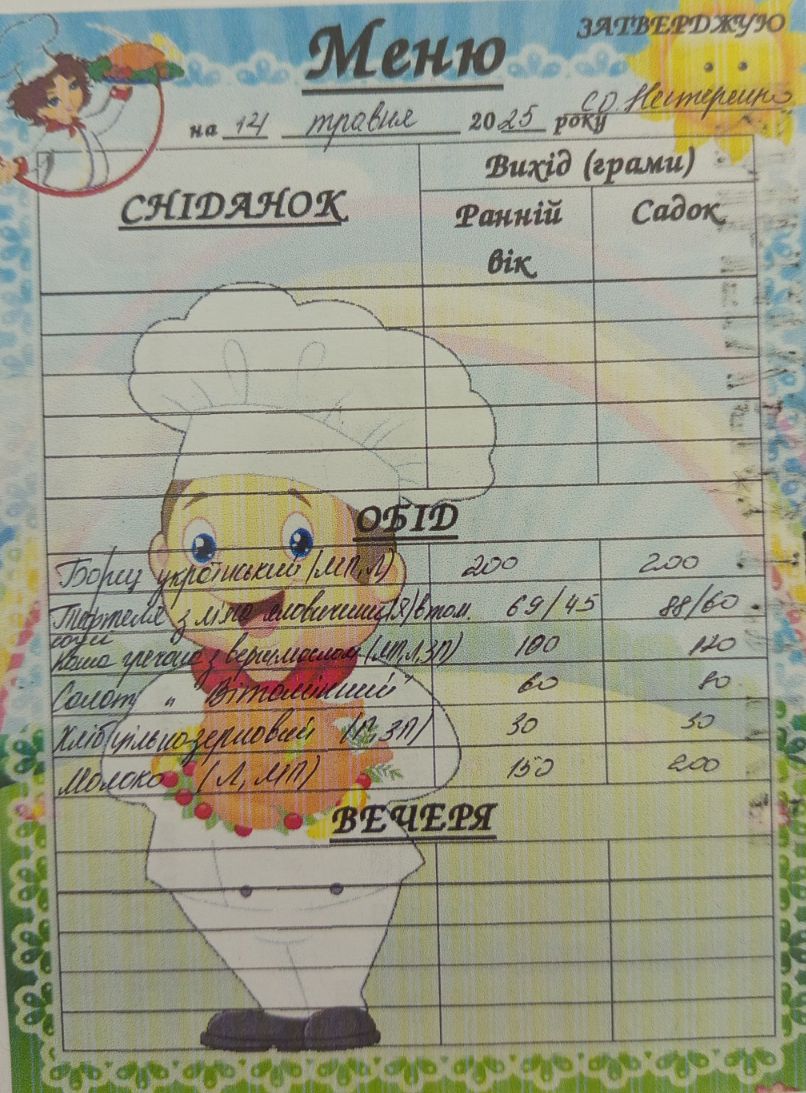 ЗАТВЕРДЖУЮ
Меню
С.О. Нестеренко
на 14 травня 2025 року
Вихід (грами)
СНІДАНОК
Ранній вік
Садок
ОБІД
Борщ український (МП,Л) 200 200
з м'яса яловичини (Я) в том. 69/45 88/60
соусі
Каша гречана з верш.маслом (МП,Л,ЗП) 100 120
Салат "Вітамінний" 60 80
Хліб цільнозерновий (П,ЗП) 30 50
Молоко (Л, МП) 150 200
ВЕЧЕРЯ